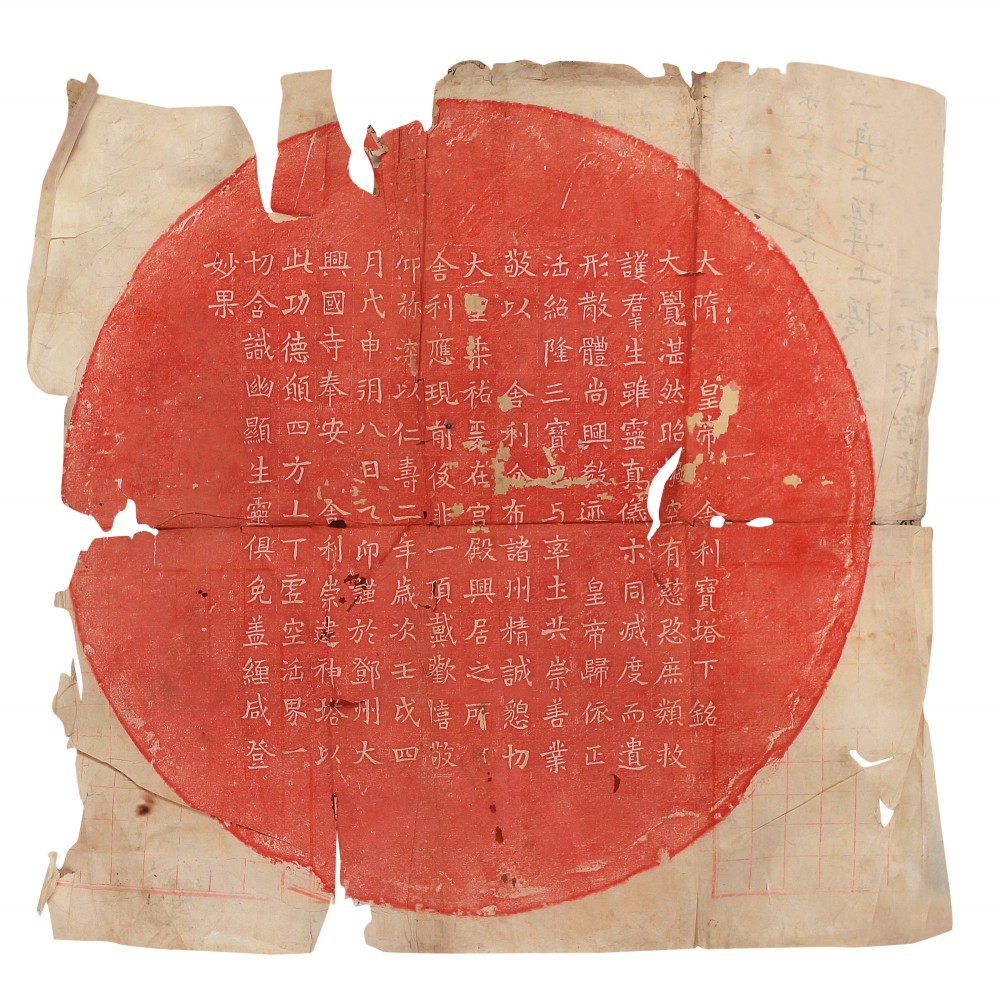 大隋 皇帝 舍利寶塔下銘
大覺湛然昭空有慈愍庶類救
護羣生雖靈真儀示同滅度而遺
形散體尚興敎迹 皇帝歸依正
法紹隆三寶思与率土共崇善業
敬以 舍利分布諸州精誠懇切
大聖垂祐爰在宮殿興居之所
舍利應現前後非一頂戴歡憘敬
仰弥深以仁壽二年歲次壬戌四
月戊申朔八日乙卯謹於鄧州大
興國寺奉安 舍利崇建神塔以
此功德願四方上下虛空法界一
切含識幽顯生靈俱免盖纏咸登
妙果